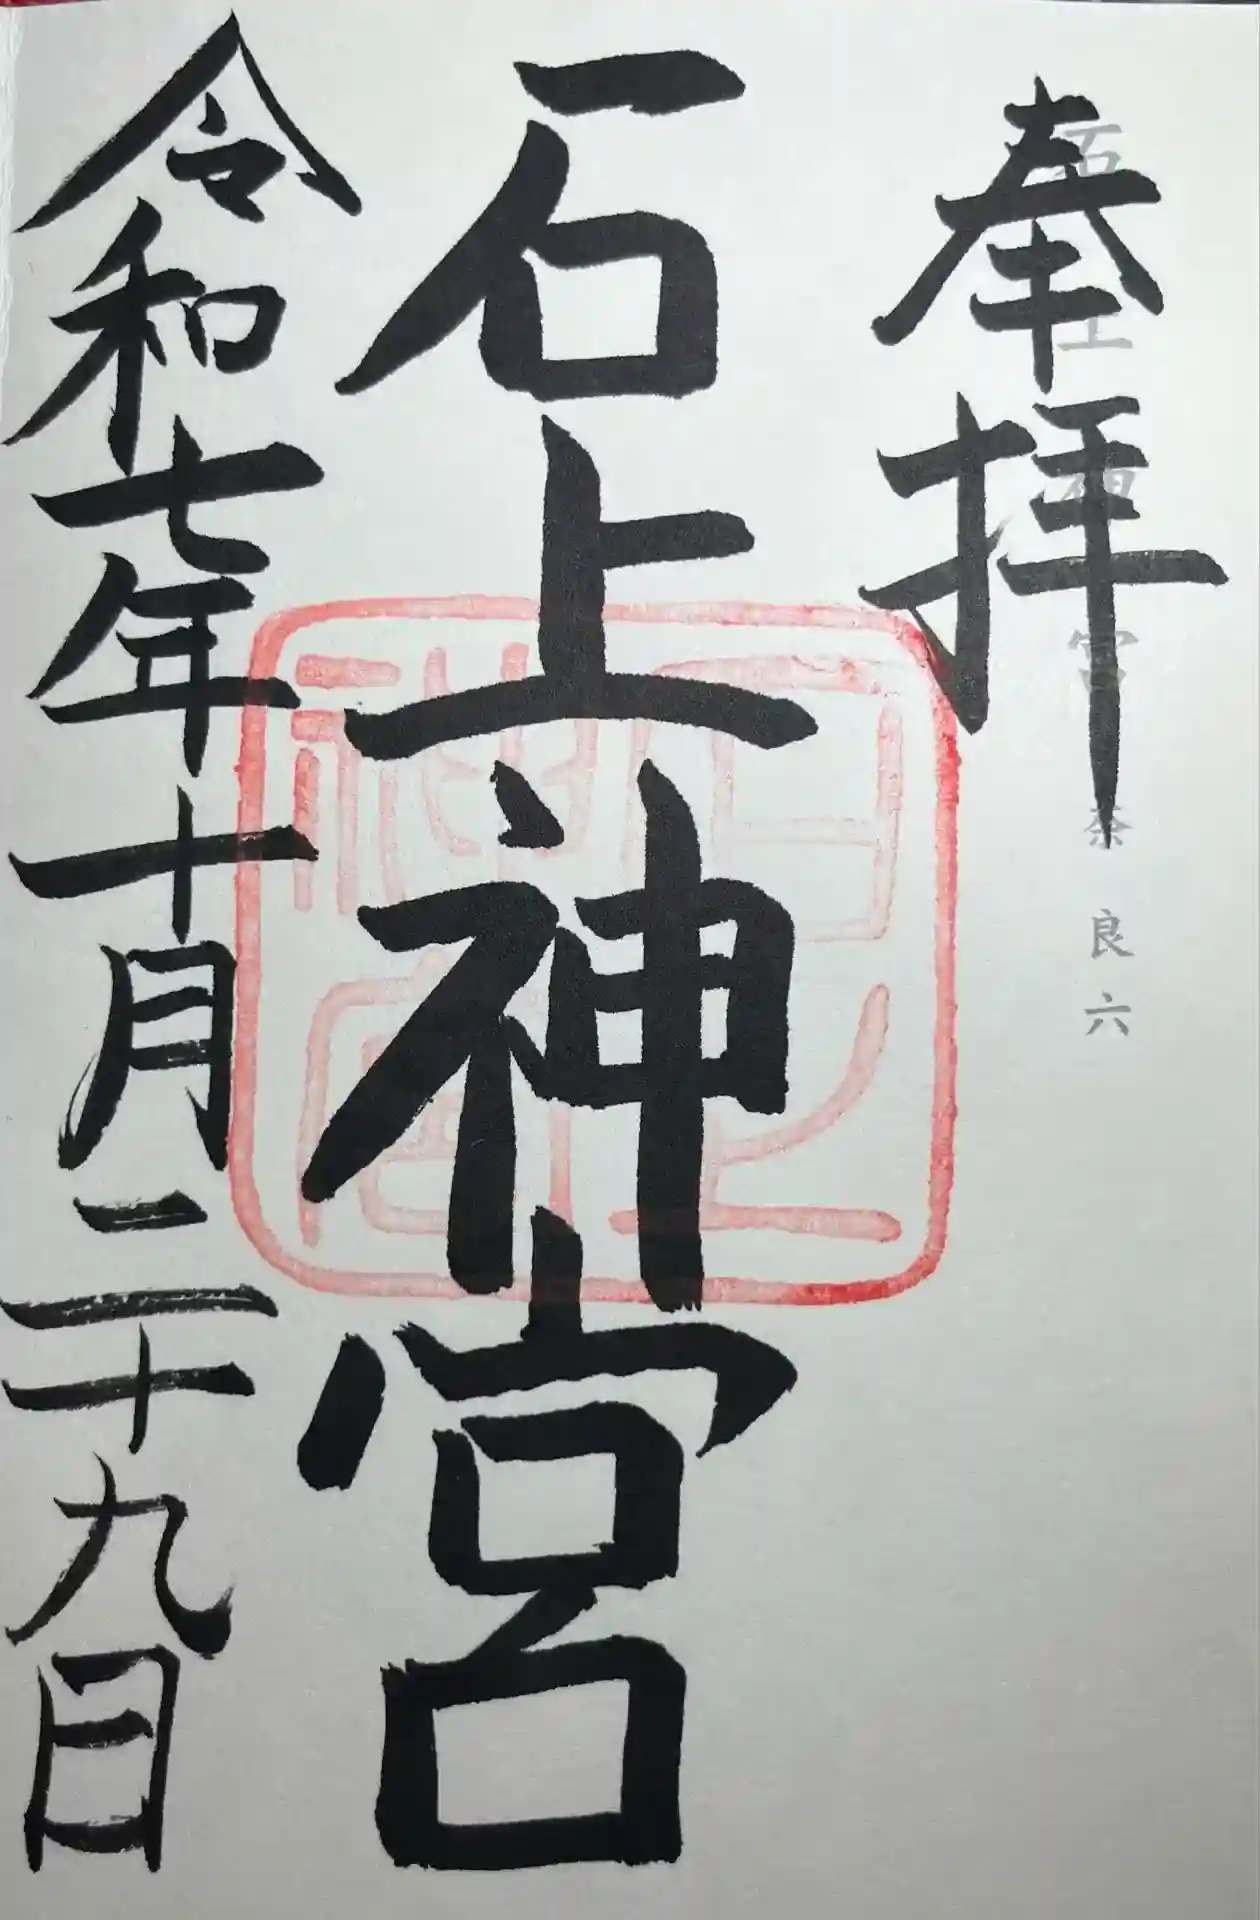 奉拝
石上神宮 奈良六
石上神宮
令和七年十月二十九日
石上神宮